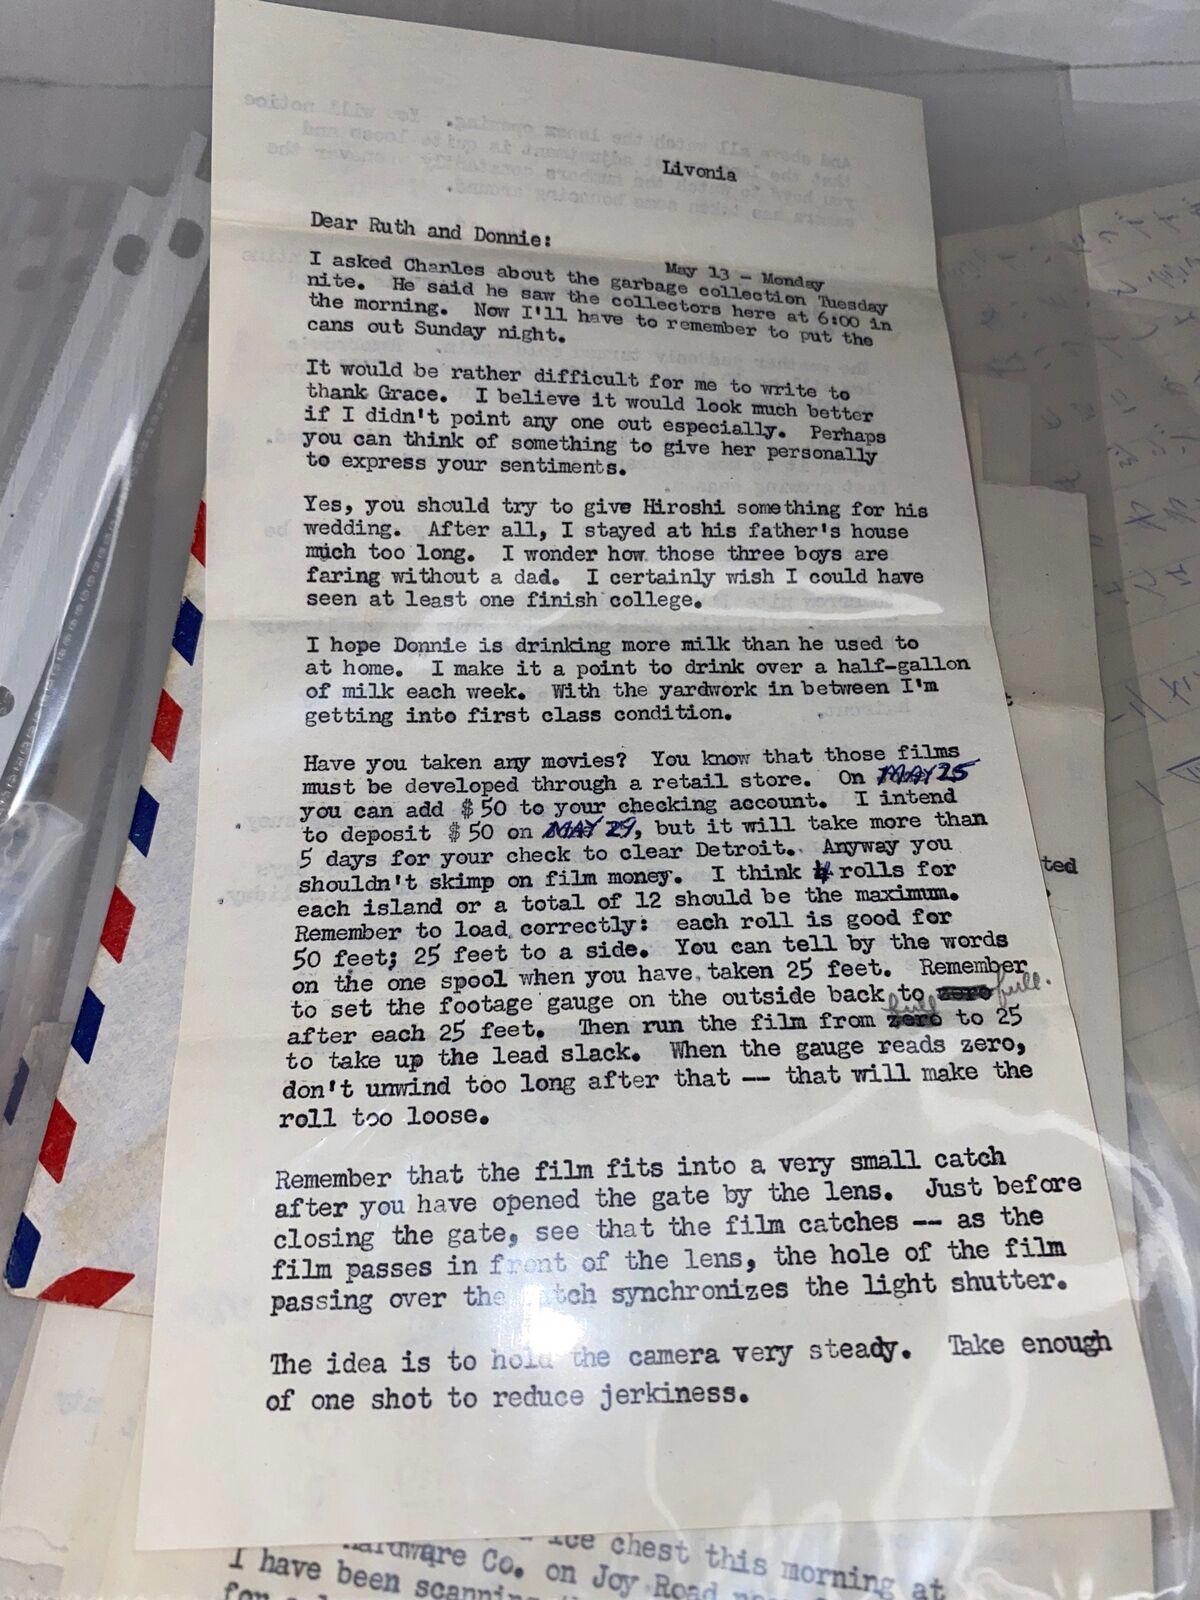 Livonia
Dear Ruth and Donnie:
May 13 - Monday
I asked Charles about the garbage collection Tuesday
nite. He said he saw the collectors here at 6:00 in
the morning. Now I'll have to remember to put the
cans out Sunday night.
It would be rather difficult for me to write to
thank Grace. I believe it would look much better
if I didn't point any one out especially. Perhaps
you can think of something to give her personally
to express your sentiments.
Yes, you should try to give Hiroshi something for his
wedding. After all, I stayed at his father's house
much too long. I wonder how those three boys are
faring without a dad. I certainly wish I could have
seen at least one finish college.
I hope Donnie is drinking more milk than he used to
at home. I make it a point to drink over a half-gallon
of milk each week. With the yardwork in between I'm
getting into first class condition.
Have you taken any movies? You know that those films
must be developed through a retail store. On MAY 25
you can add $50 to your checking account. I intend
to deposit $50 on MAY 29, but it will take more than
5 days for your check to clear Detroit. Anyway you
shouldn't skimp on film money. I think 4 rolls for
each island or a total of 12 should be the maximum.
Remember to load correctly: each roll is good for
50 feet; 25 feet to a side. You can tell by the words
on the one spool when you have taken 25 feet. Remember
to set the footage gauge on the outside back to zero full.
after each 25 feet. Then run the film from zero full to 25
to take up the lead slack. When the gauge reads zero,
don't unwind too long after that -- that will make the
roll too loose.
Remember that the film fits into a very small catch
after you have opened the gate by the lens. Just before
closing the gate, see that the film catches -- as the
film passes in front of the lens, the hole of the film
passing over the catch synchronizes the light shutter.
The idea is to hold the camera very steady. Take enough
of one shot to reduce jerkiness.
ted
ice chest this morning at
Hardware Co. on Joy Road
I have been scanning